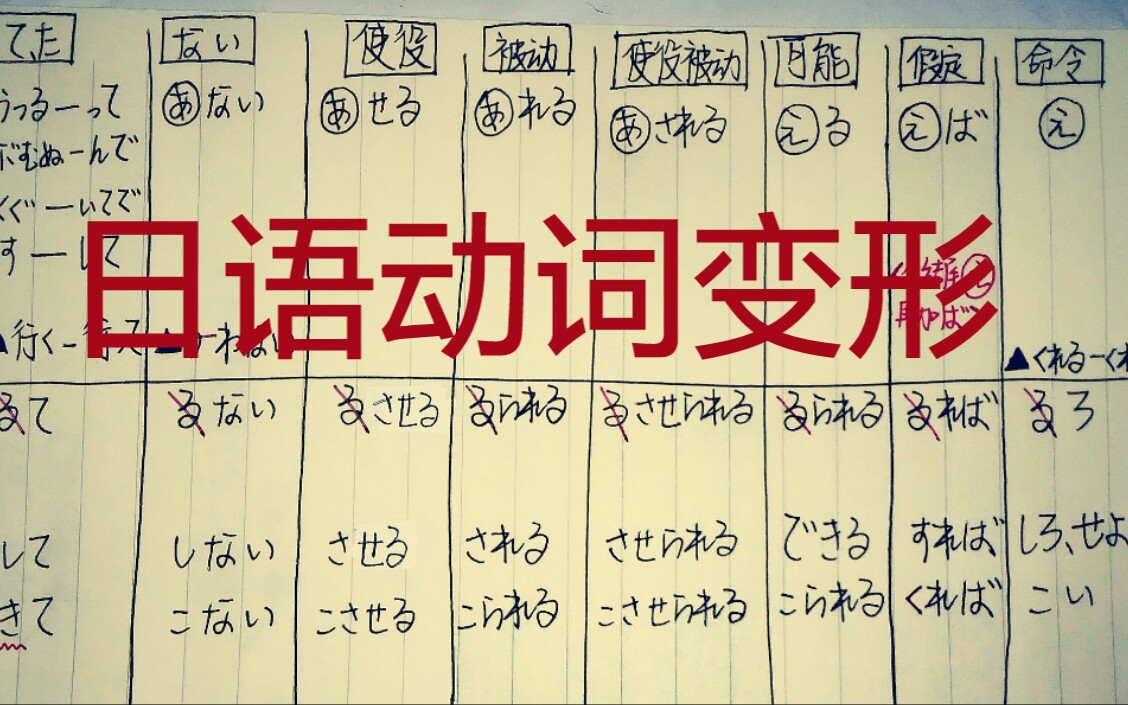 てた ない 使役 被动 使役被动 可能 假定 命令
うつるーって あない あせる あれる あされる える えば え
ぶむぬーんで
くぐーいてで
すーして
日语动词变形
再加ば
▲行くー行って
▲くれるーくれ
るて るない るさせる るられる るさせられる るられる るれば るろ
して しない させる される させられる できる すれば しろ、せよ
きて こない こさせる こられる こさせられる こられる くれば こい